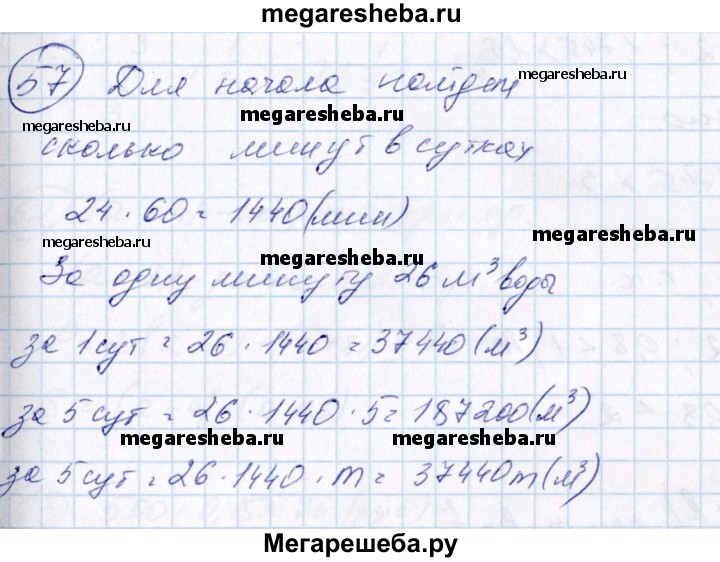 megaresheba.ru
57 Для начала найдем
megaresheba.ru
megaresheba.ru
megaresheba.ru
сколько минут в сутках
24 · 60 = 1440 (мин)
megaresheba.ru
megaresheba.ru
megaresheba.ru
За одну минуту 26 м³ воды
за 1 сут = 26 · 1440 = 37440 (м³)
за 5 сут = 26 · 1440 · 5 = 187200 (м³)
megaresheba.ru
megaresheba.ru
за 5 сут = 26 · 1440 · m = 37440m (м³)
Мегарешеба.ру